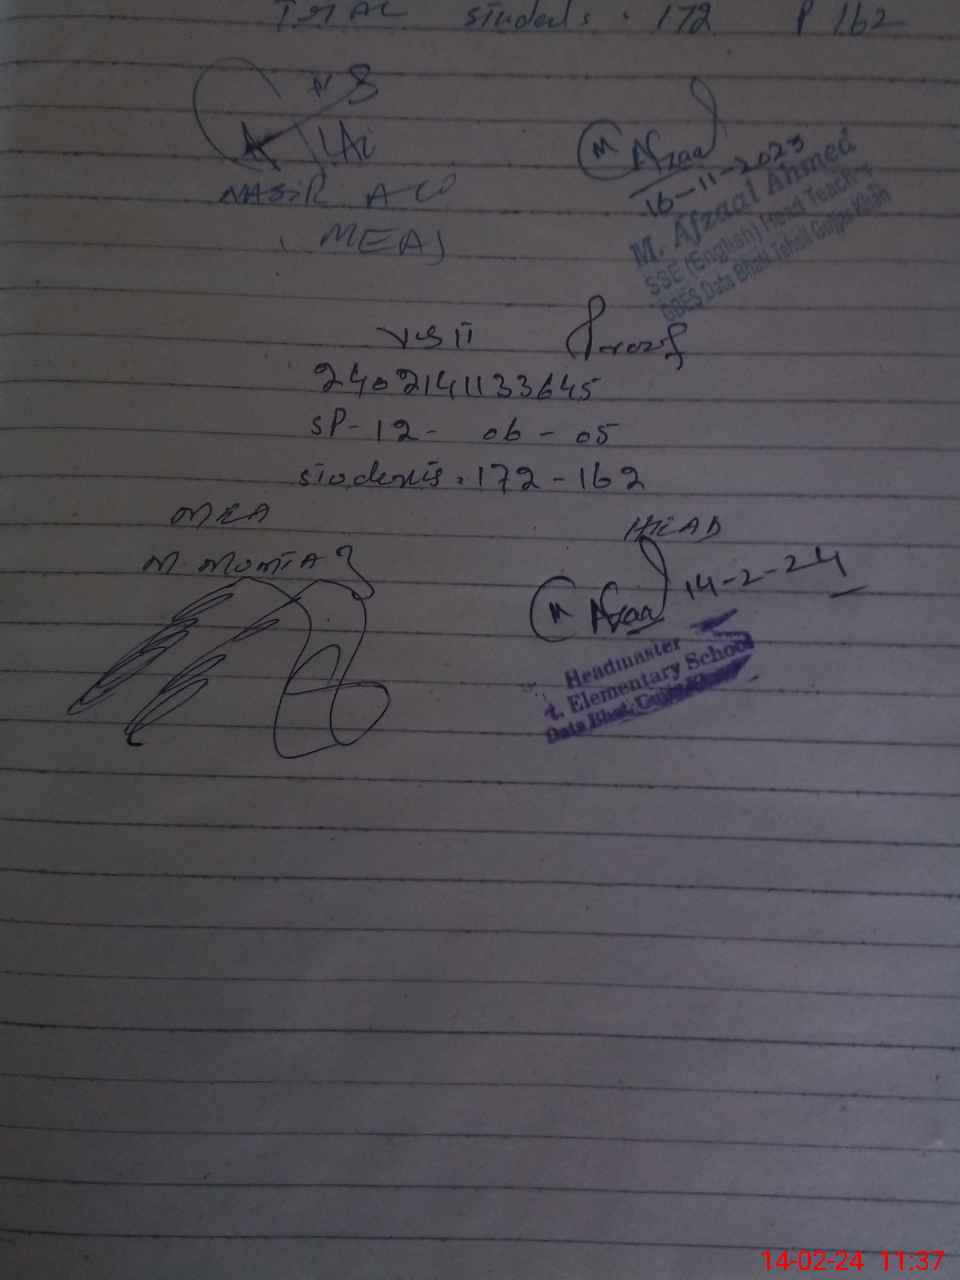 Total Students: 172 P 162
NASIR ALi
MEA
M Afzaal
16-11-2023
M. Afzaal Ahmed
SSE (English) Head Teacher
GBES Data Bhatt Tehsil Gujjar Khan
Visit Proof
2402141133645
SP-12- 06-05
students: 172-162
MEA HEAD
M. Momtaz
M Afzaal 14-2-24
Headmaster
t. Elementary School
Data Bhat, Gujar Khan
14-02-24 11:37